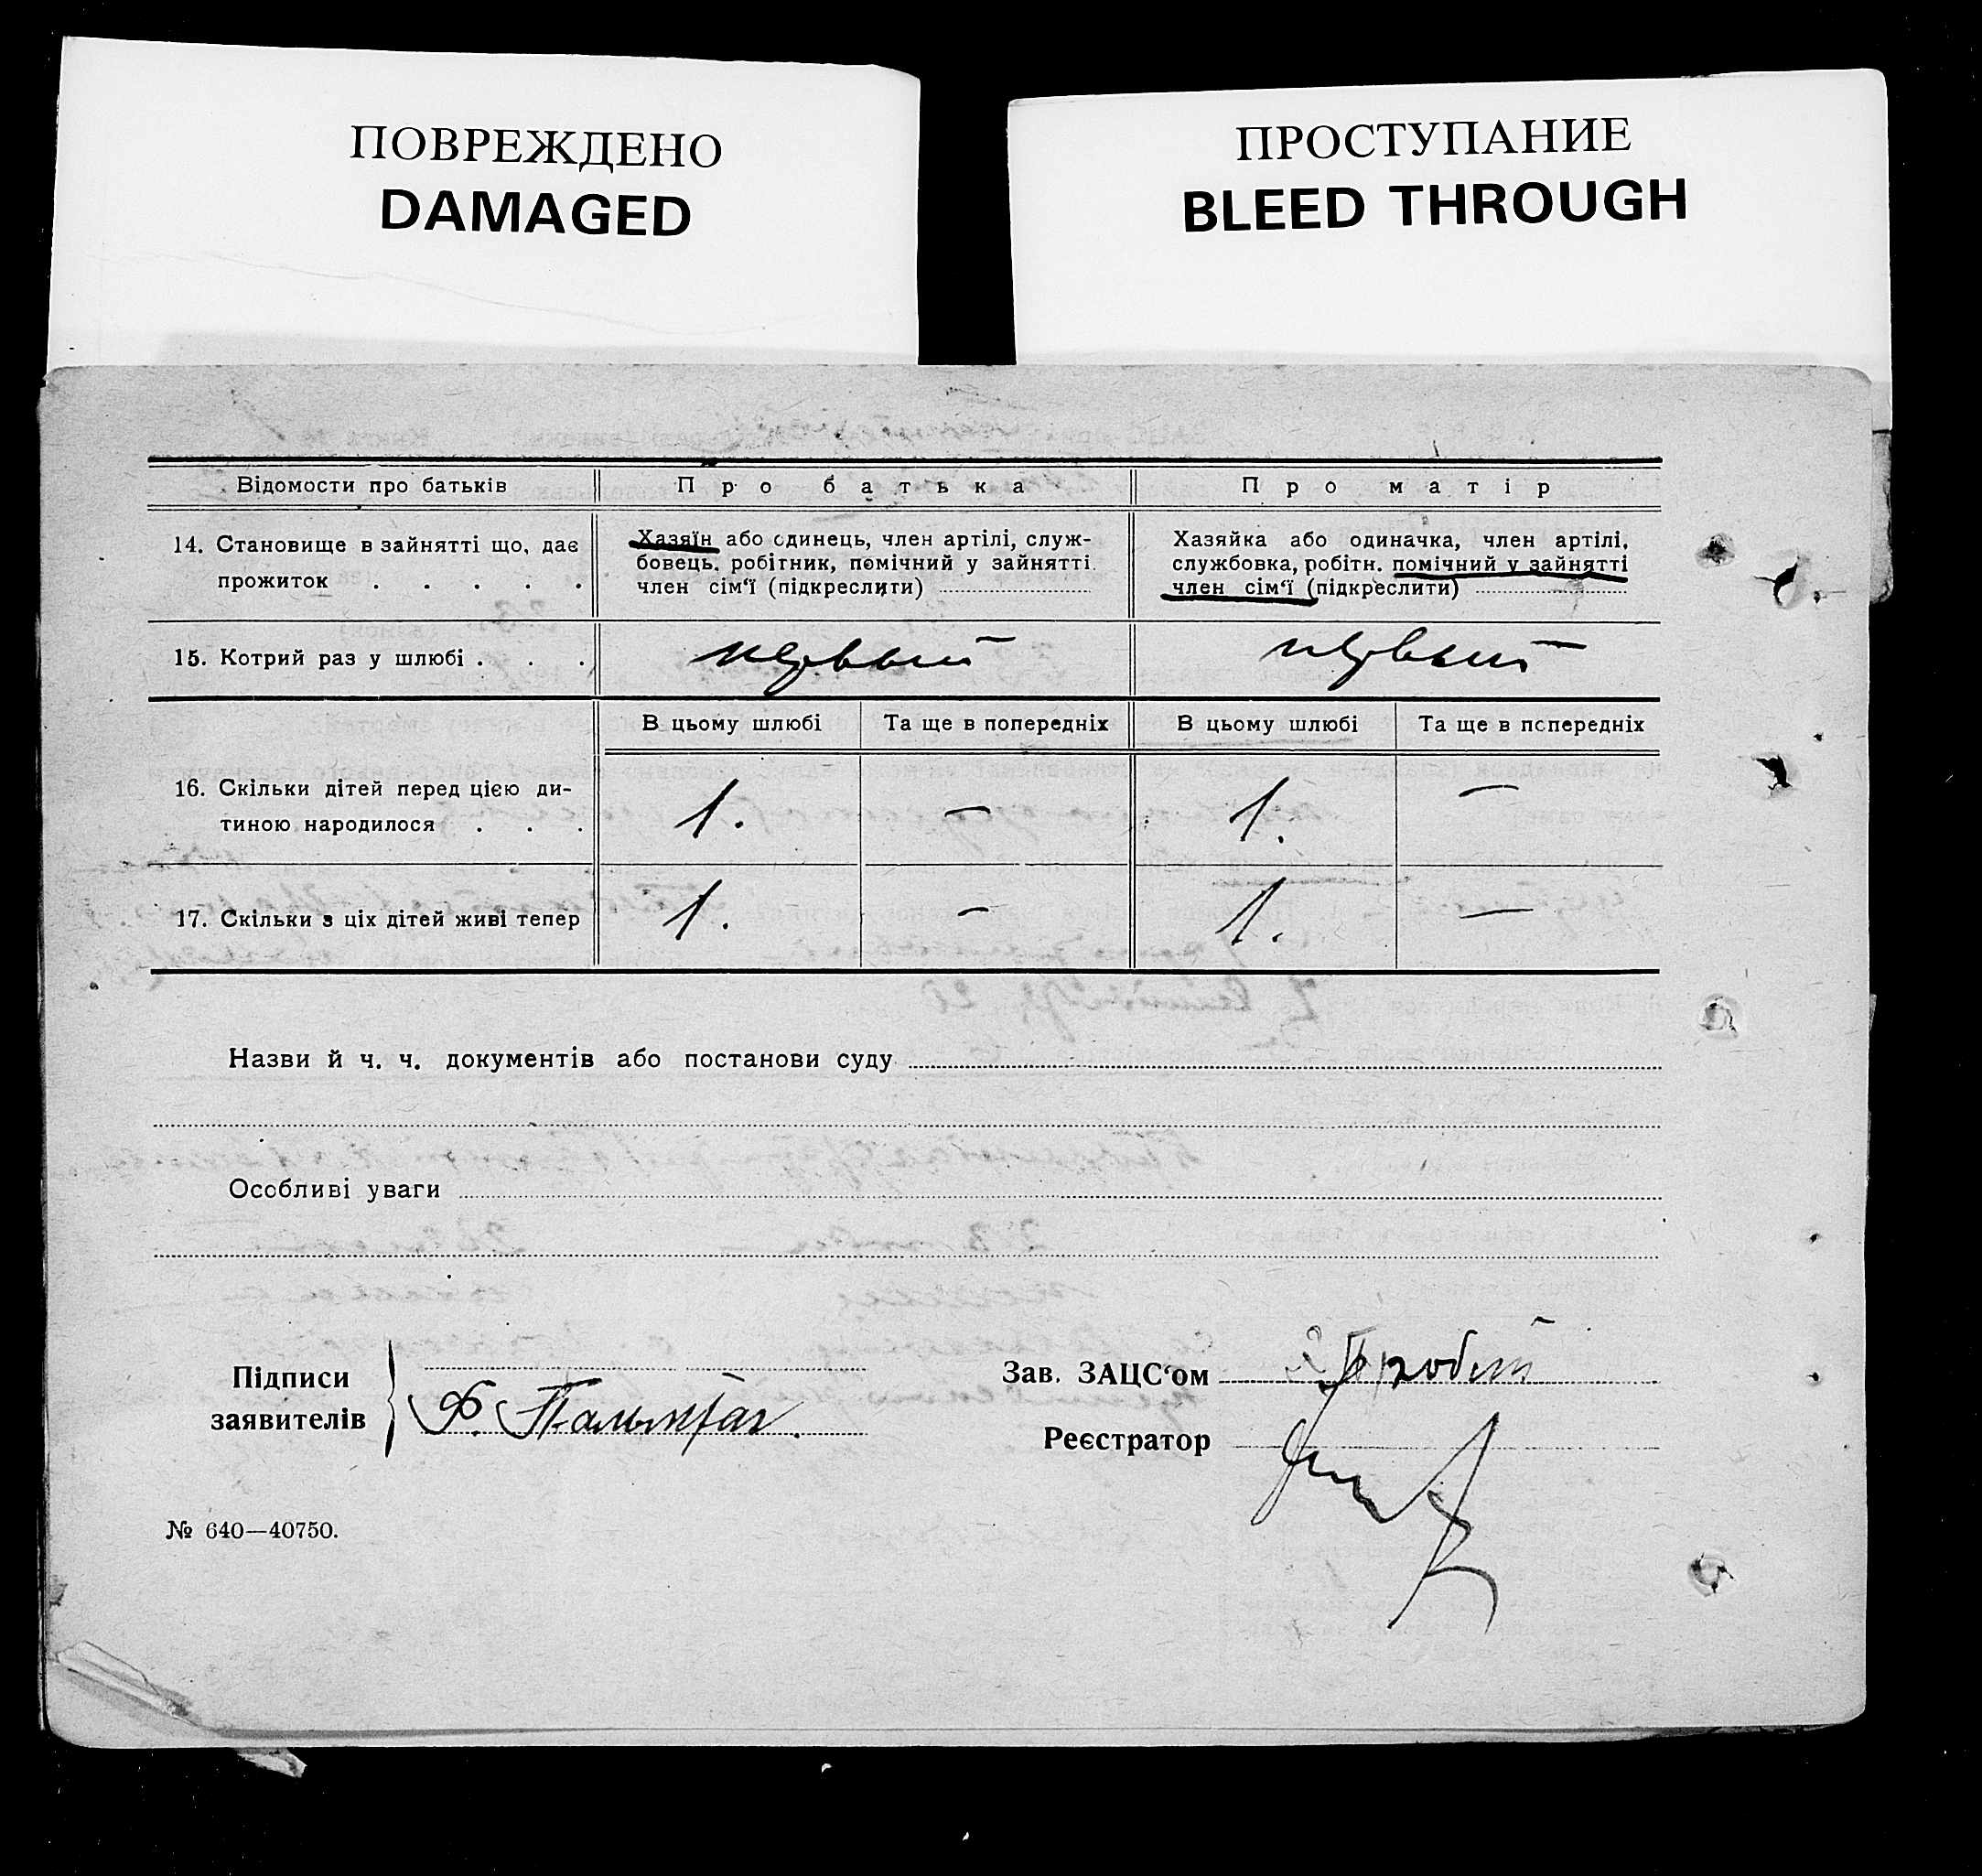 ПОВРЕЖДЕНО
DAMAGED
ПРОСТУПАНИЕ
BLEED THROUGH
Відомости про батьків
Про батька
Про матір
14. Становище в зайнятті що, дає
прожиток . . . . .
Хазяїн або одинець, член артілі, служ-
бовець, робітник, помічний у зайнятті
член сім‘ї (підкреслити)
Хазяйка або одиначка, член артілі,
службовка, робітн. помічний у зайнятті
член сім‘ї (підкреслити)
15. Котрий раз у шлюбі . . .
первый
первый
В цьому шлюбі
Та ще в попередніх
В цьому шлюбі
Та ще в попередніх
16. Скільки дітей перед цією ди-
тиною народилося . . .
1.
—
1.
—
17. Скільки з ціх дітей живі тепер
1.
—
1.
—
Назви й ч. ч. документів або постанови суду
Особливі уваги
Підписи
заявителів
Ф.
Зав. ЗАЦС‘ом
Реєстратор
№ 640—40750.